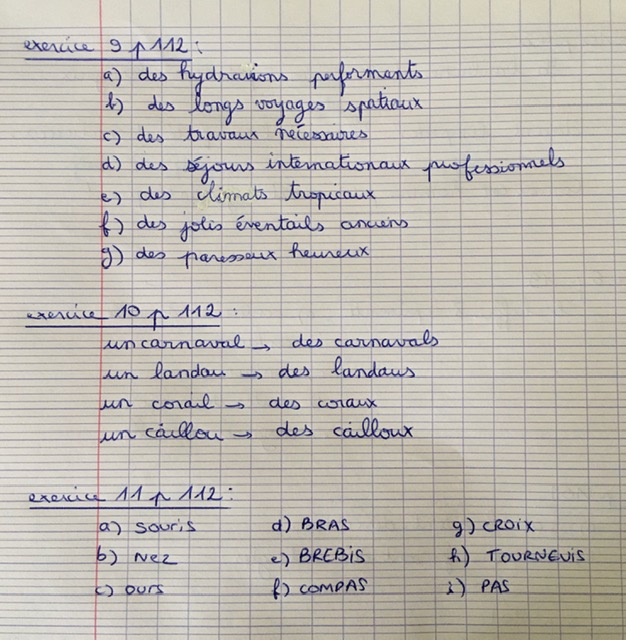 exercice 9 p 112 :
a) des hydravions performents
b) des longs voyages spatiaux
c) des travaux nécessaires
d) des séjours internationaux professionnels
e) des climats tropicaux
f) des jolis éventails anciens
g) des paresseux heureux
exercice 10 p 112 :
un carnaval → des carnavals
un landau → des landaus
un corail → des coraux
un caillou → des cailloux
exercice 11 p 112 :
a) SOURIS d) BRAS g) CROIX
b) NEZ e) BREBIS h) TOURNEVIS
c) OURS f) COMPAS i) PAS